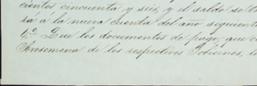 cientos cincuenta y seis, y el saldo se
sa á la nueva cuenta del año siguiente
6.º Que los documentos de pago, que
de los respectivos